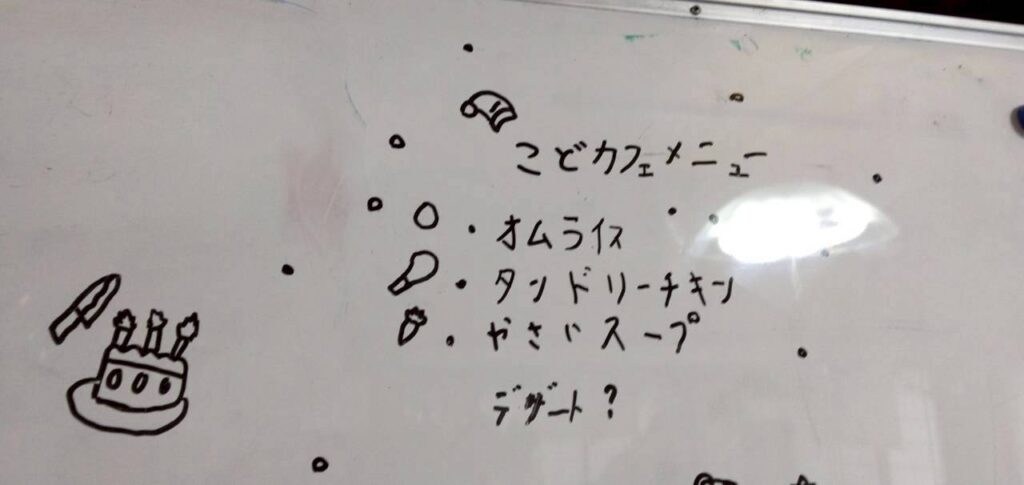 こどカフェメニュー
・オムライス
・タンドリーチキン
・やさいスープ
デザート?